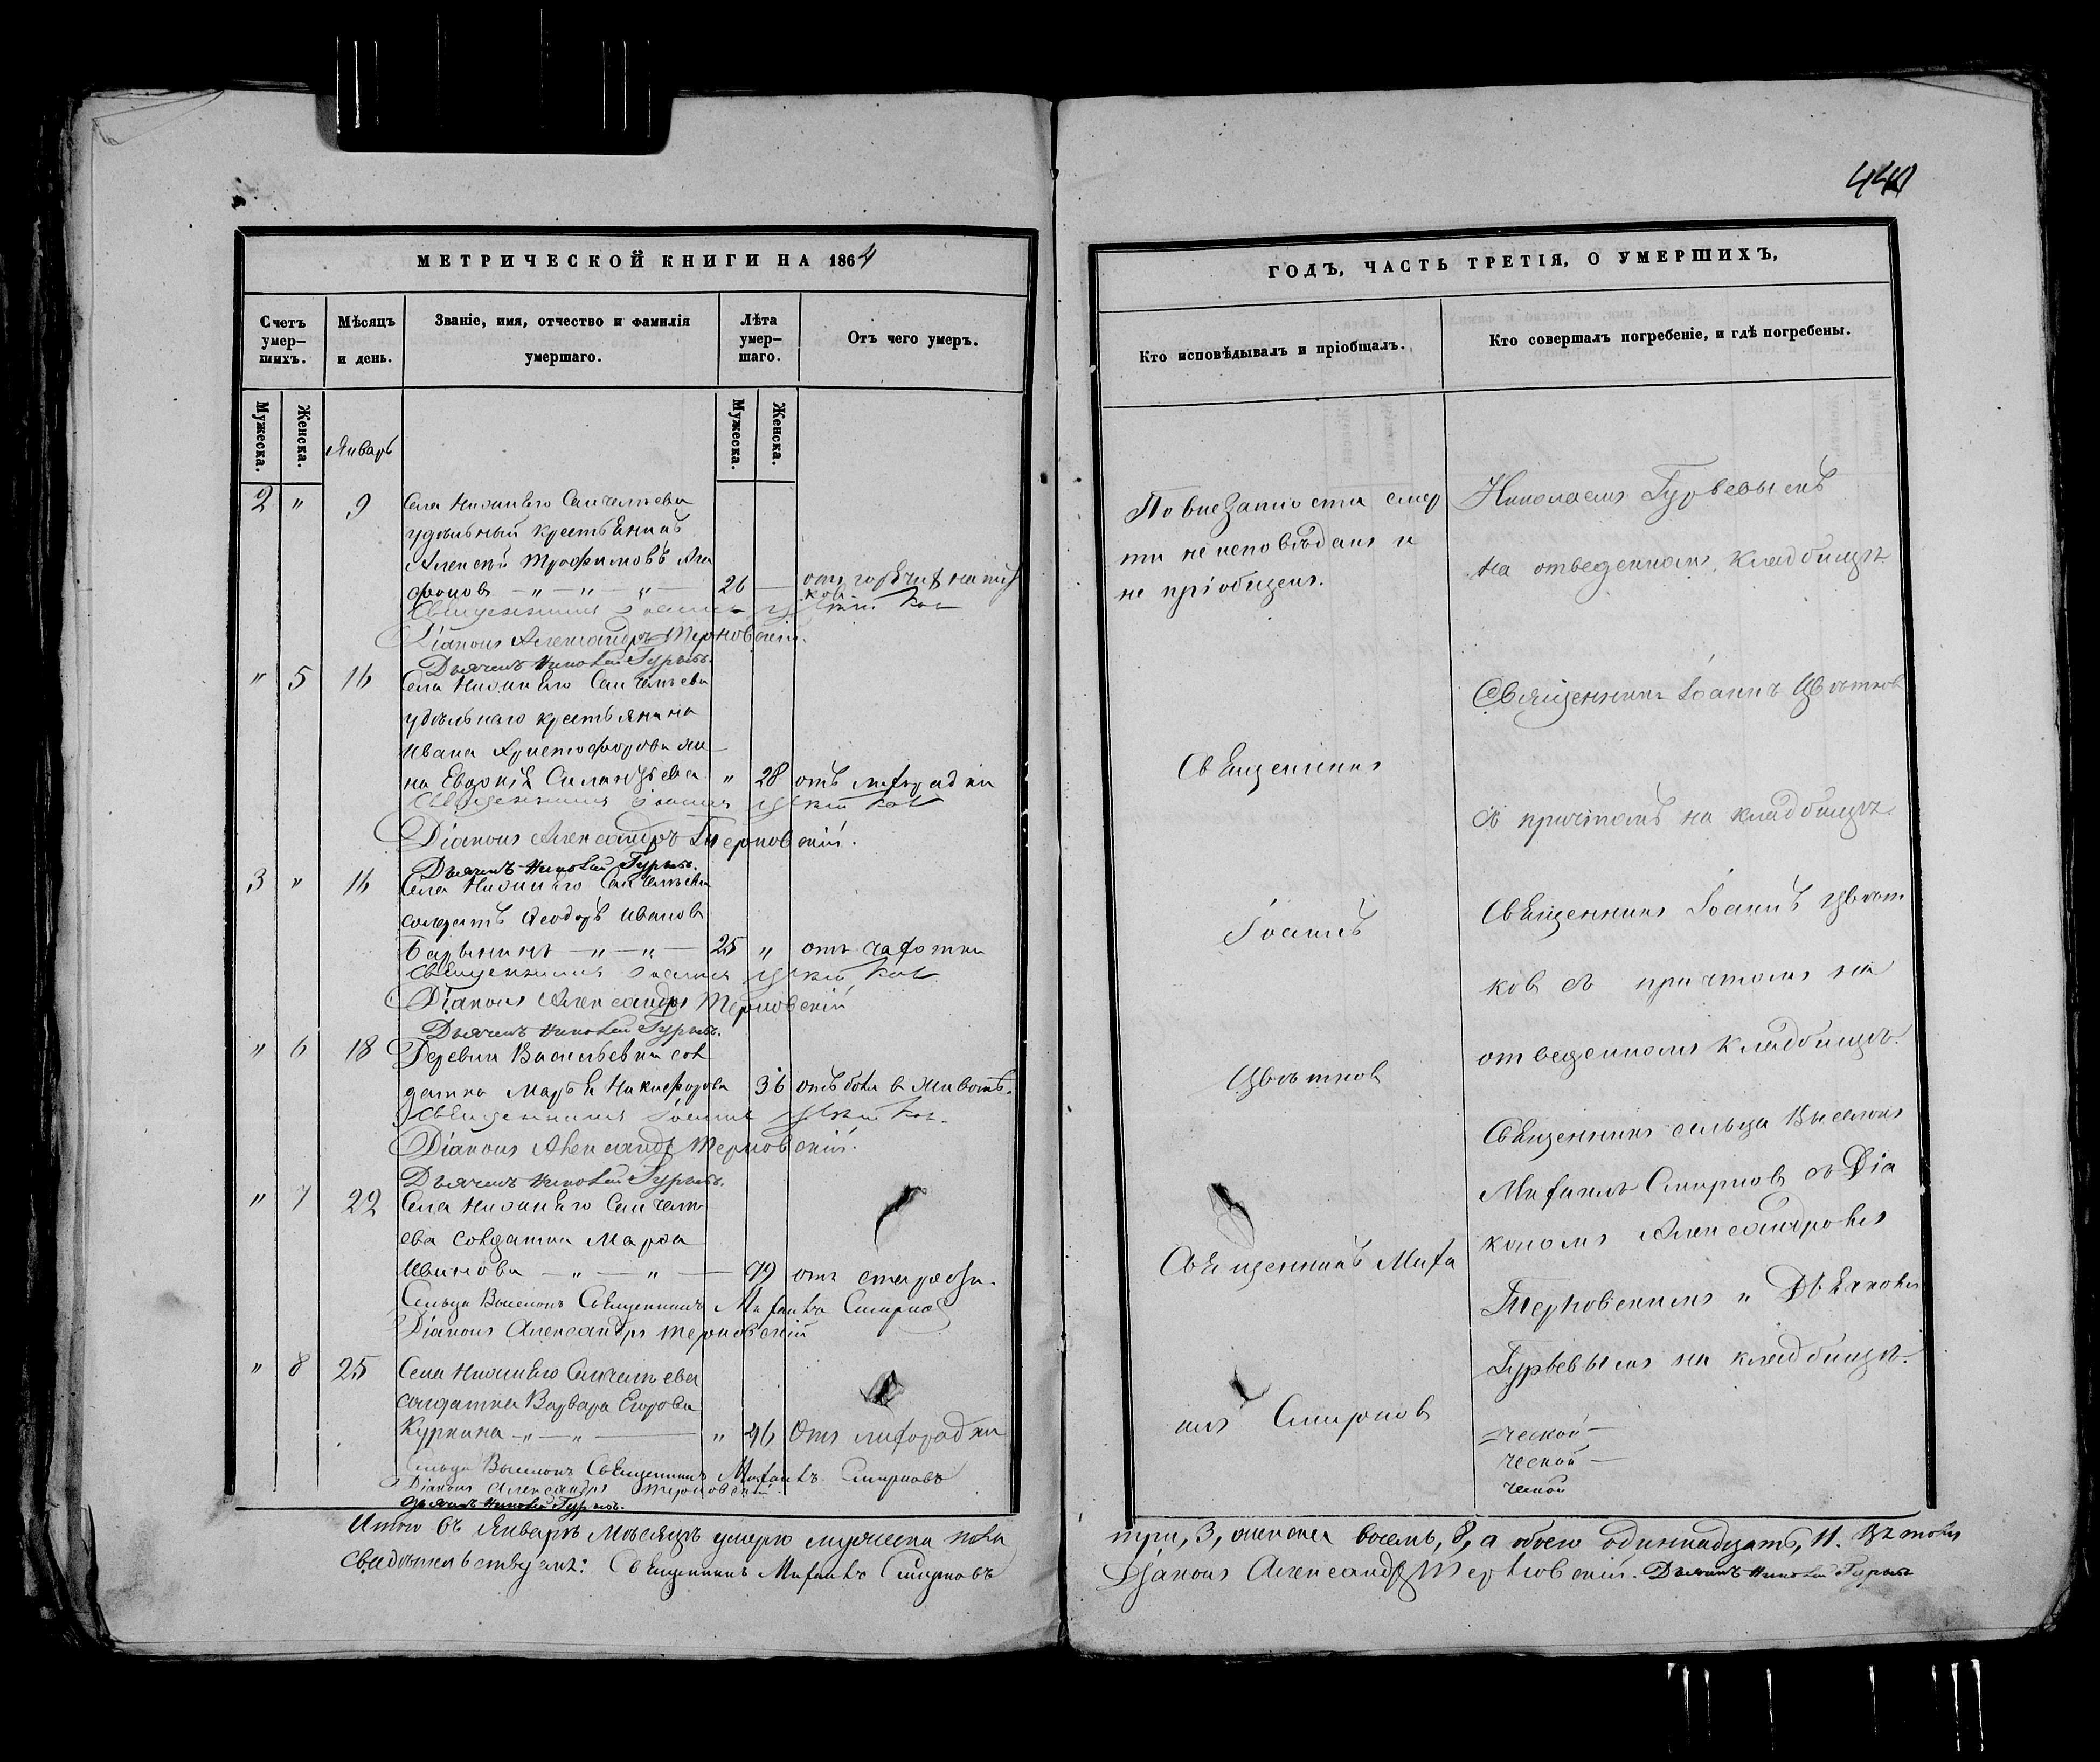 МЕТРИЧЕСКОЙ КНИГИ НА 1864
Счетъ умер-
шихъ.
Мѣсяцъ
и день.
Званіе, имя, отчество и фамилія
умершаго.
Лѣта
умер-
шаго.
Отъ чего умеръ.
Мужеска.
Женска.
Январь
Мужеска.
Женска.
2 " 9 Села Нижняго Санчелеева
удѣльный крестьянинъ
Алексѣй Трофимовъ Ага
фоновъ — " — " — 26 — отъ горячихъ напит
ковъ
Священникъ Іоаннъ Цвѣтков
Діаконъ Александръ Терновскій.
Дьячекъ Николай Гурьевъ.
" 5 16 Села Нижняго Санчелеева
удѣльнаго крестьянина
Ивана Христофорова же
на Евдокія Силантьева " 28 отъ лихорадки
Священникъ Іоаннъ Цвѣтков
Діаконъ Александръ Терновскій.
Дьячекъ Николай Гурьевъ.
3 " 16 Села Нижняго Санчелеева
солдатъ Ѳеодоръ Иванов
— " — " — 25 " отъ чахотки
Священникъ Іоаннъ Цвѣтков
Діаконъ Александръ Терновскій
Дьячекъ Николай Гурьевъ.
" 6 18 Деревни Васильевки сол
датка Марья Никифорова 36 отъ боли в животѣ.
Священникъ Іоаннъ Цвѣтков.
Діаконъ Александръ Терновскій.
Дьячекъ Николай Гурьевъ.
" 7 22 Села Нижняго Санчеле
ева солдатка Марѳа
Иванова — " — " — отъ старости.
Сельца Выселокъ Священникъ Михаилъ Смирнов
Діаконъ Александръ Терновскій
" 8 25 Села Нижняго Санчелеева
солдатка Варвара Егорова
Куркина — " — " — " 46 Отъ лихорадки
Сельца Выселокъ Священникъ Михаилъ Смирновъ
Діаконъ Александръ Терновскій.
Дьячекъ Николай Гурьевъ.
Итого въ Январѣ мѣсяцѣ умерло мужеска пола
свидѣтельствуемъ: Священникъ Михаилъ Смирновъ
ГОДЪ, ЧАСТЬ ТРЕТІЯ, О УМЕРШИХЪ,
Кто исповѣдывалъ и пріобщалъ.
Кто совершалъ погребеніе, и гдѣ погребены.
По внезапности смер
ти не исповѣданъ и
не пріобщенъ.
Священникъ
Іоаннъ
Цвѣтков
Священникъ Миха
илъ Смирнов
Николаемъ Гурьевымъ
на отведенномъ кладбищѣ.
Священникъ Іоаннъ Цвѣтков
съ причтомъ на кладбищѣ.
Священникъ Іоаннъ Цвѣт
ков съ причтомъ на
отведенномъ кладбищѣ.
Священникъ сельца Выселокъ
Михаилъ Смирнов съ Діа
кономъ Александромъ
Терновскимъ и Дьячкомъ
Гурьевымъ на кладбищѣ.
ческой —
ческой —
ческой
три, 3, женска восемь, 8, а обоего одиннадцать, 11. Въ томъ
Діаконъ Александръ Терновскій. Дьячекъ Николай Гурьевъ